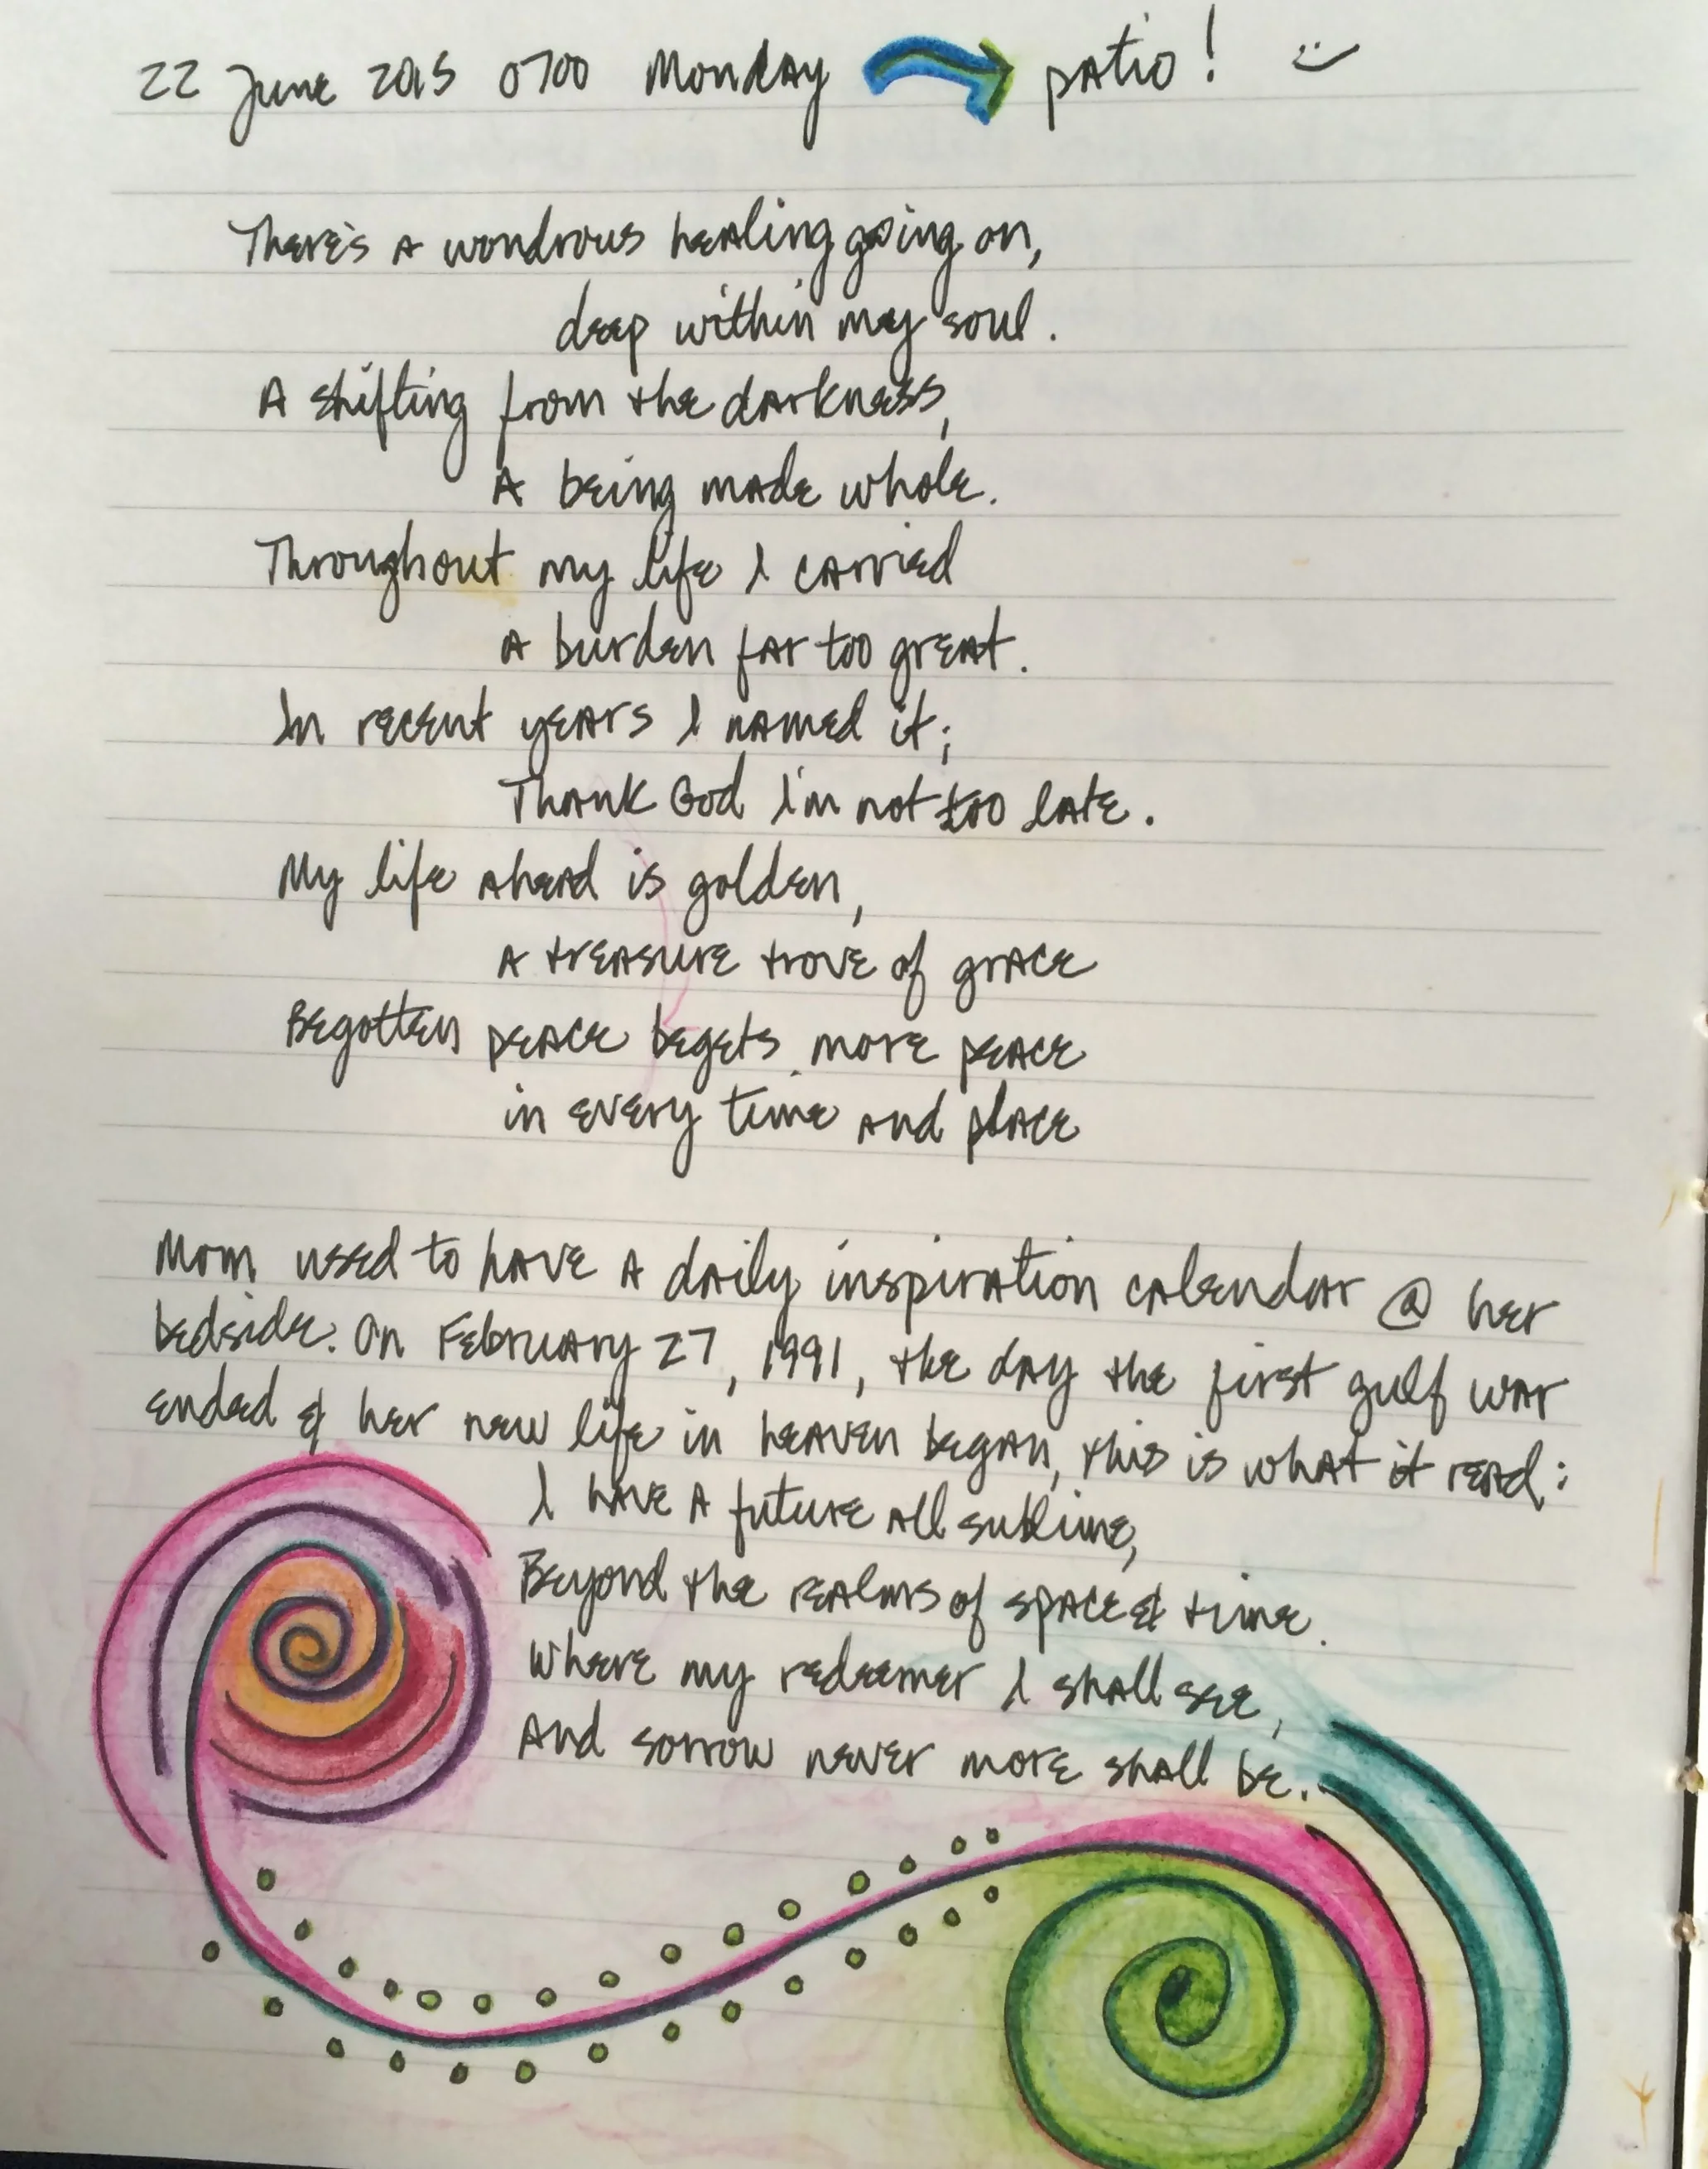 22 June 2015 0700 Monday patio!
There's a wondrous healing going on,
deep within my soul.
A shifting from the darkness,
A being made whole.
Throughout my life I carried
a burden far too great.
In recent years I named it;
Thank God I'm not too late.
My life ahead is golden,
a treasure trove of grace
Begotten peace begets more peace
in every time and place
Mom used to have a daily inspiration calendar @ her
bedside. On February 27, 1991, the day the first gulf war
ended & her new life in heaven began, this is what it read:
I have a future all sublime,
Beyond the realms of space & time.
Where my redeemer I shall see,
And sorrow never more shall be.